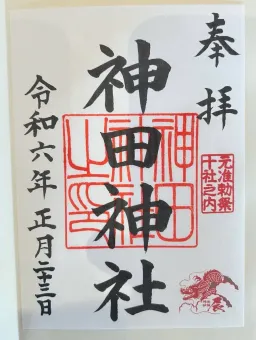 奉拝
元准勅祭
十社之内
神田神社
神田
神社
之印
令和六年正月二十三日
辰